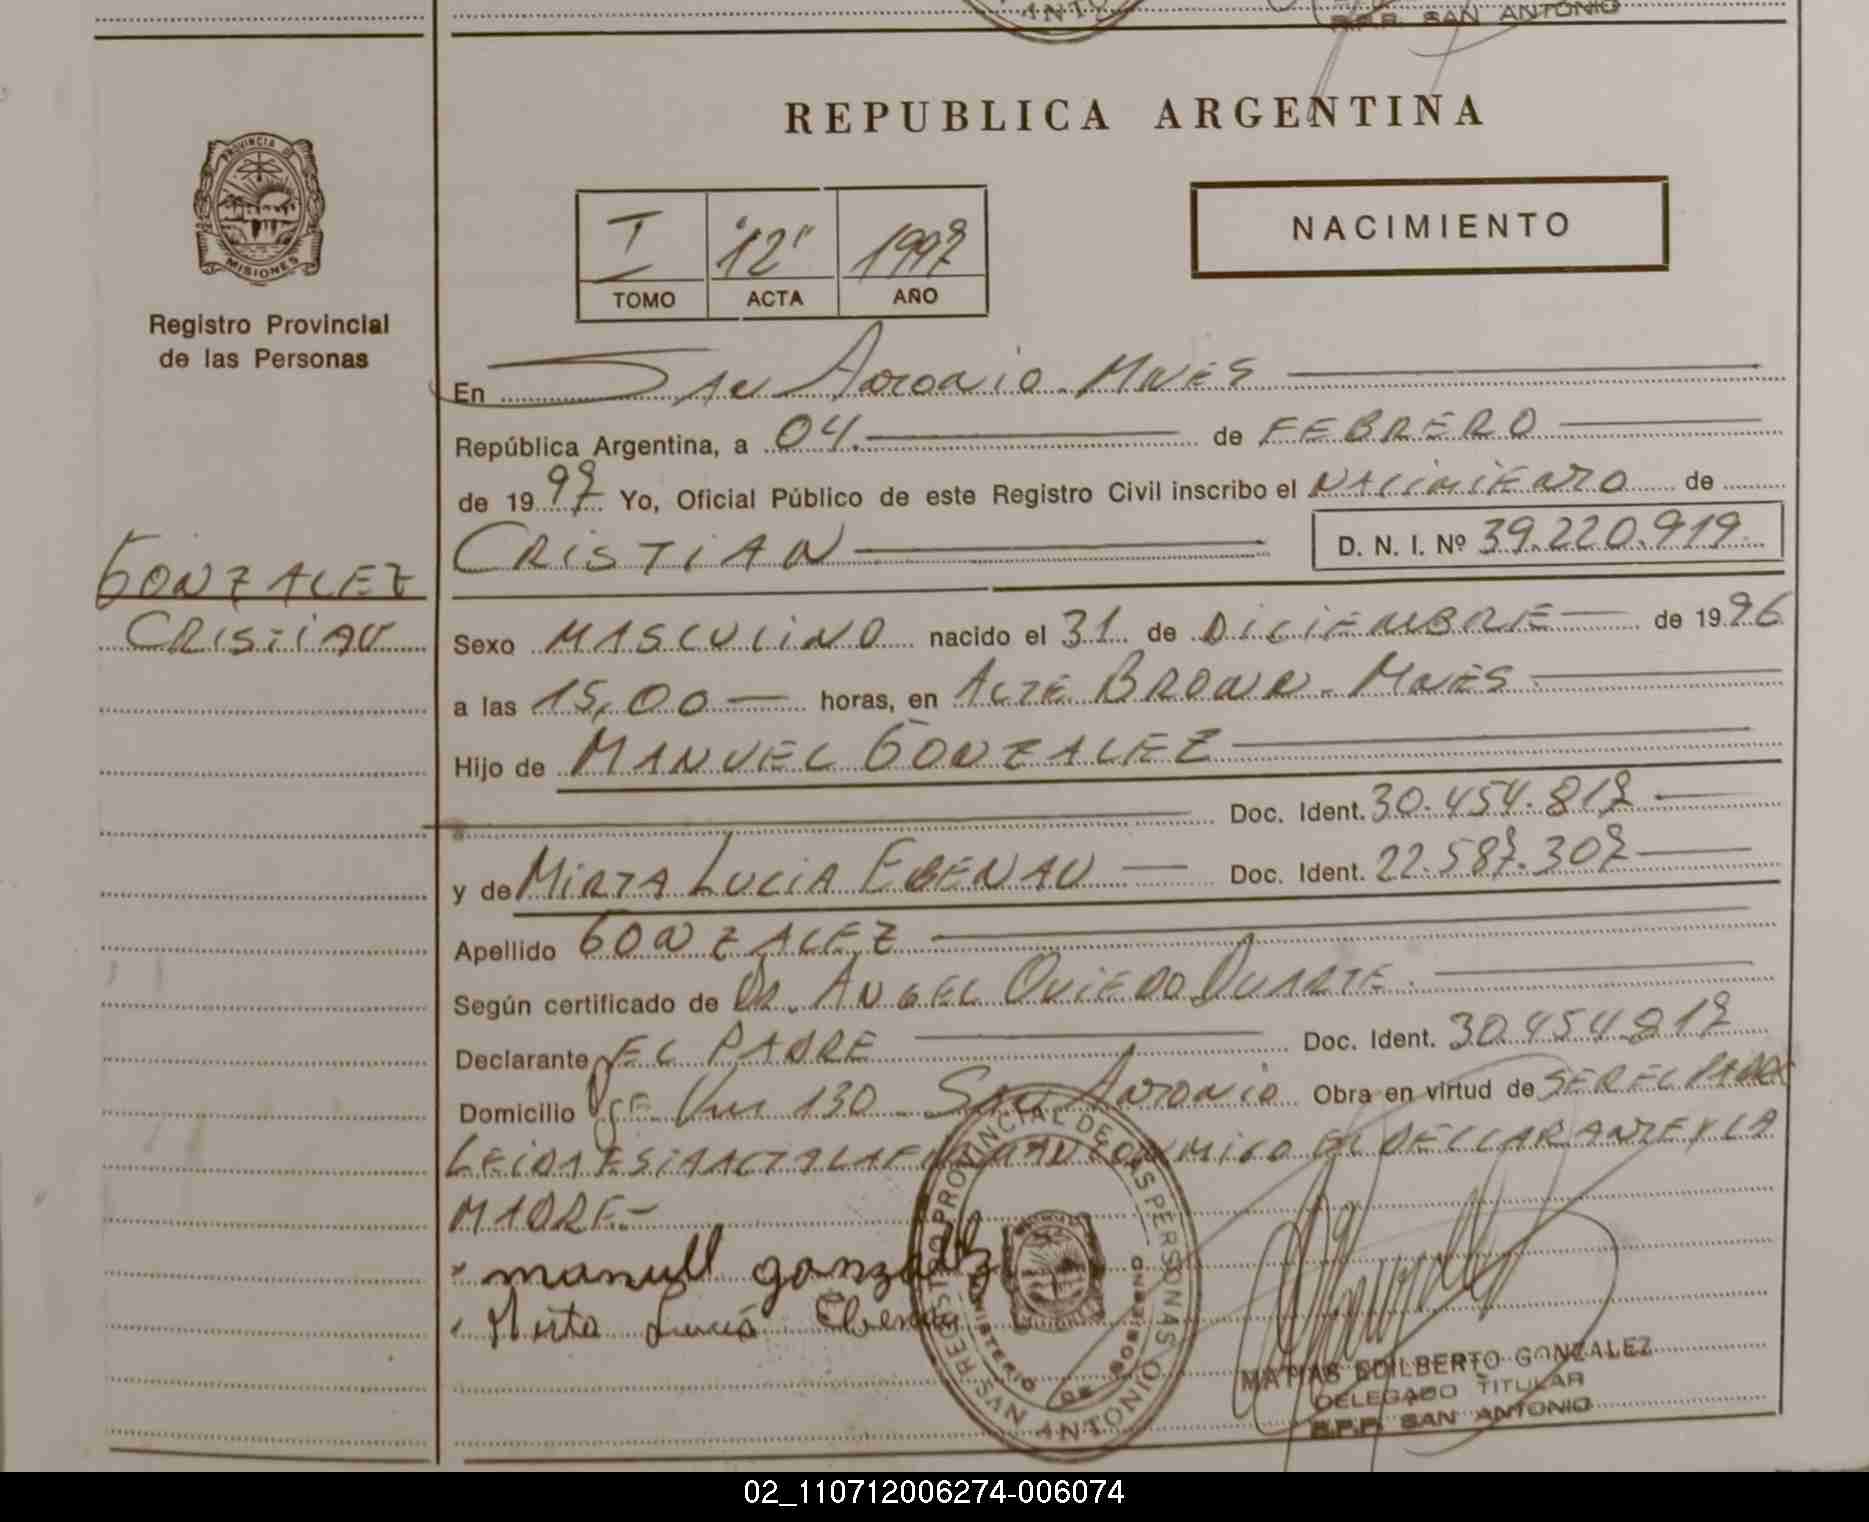 R.P.P. SAN ANTONIO
REPUBLICA ARGENTINA
PROVINCIA DE MISIONES
Registro Provincial
de las Personas
I "12" 1997
TOMO ACTA AÑO
NACIMIENTO
En San Antonio. Mnes
República Argentina, a 04. de FEBRERO
de 1997 Yo, Oficial Público de este Registro Civil inscribo el NACIMIENTO de
CRISTIAN D. N. I. Nº 39.220.919
GONZALEZ
CRISTIAN
Sexo MASCULINO nacido el 31 de DICIEMBRE de 1996
a las 15,00 horas, en ALTE BROWN. MNES
Hijo de MANUEL GONZALEZ
Doc. Ident. 30.454.817
y de MIRTA LUCIA EBENAU Doc. Ident. 22.587.307
Apellido GONZALEZ
Según certificado de DR. ANGEL OVIEDO DUARTE.
Declarante EL PADRE Doc. Ident. 30.454.817
Domicilio Km 130 San Antonio Obra en virtud de SER EL PADRE
LEIDA ESTA ACTA LA FIRMAN CONMIGO EL DECLARANTE Y LA
MADRE.-
manuel gonzalez
Mirta Lucia Ebenau
REGISTRO PROVINCIAL DE LAS PERSONAS
MINISTERIO DE GOBIERNO
SAN ANTONIO
MATIAS EDILBERTO GONZALEZ
DELEGADO TITULAR
R.P.P. SAN ANTONIO
02_110712006274-006074